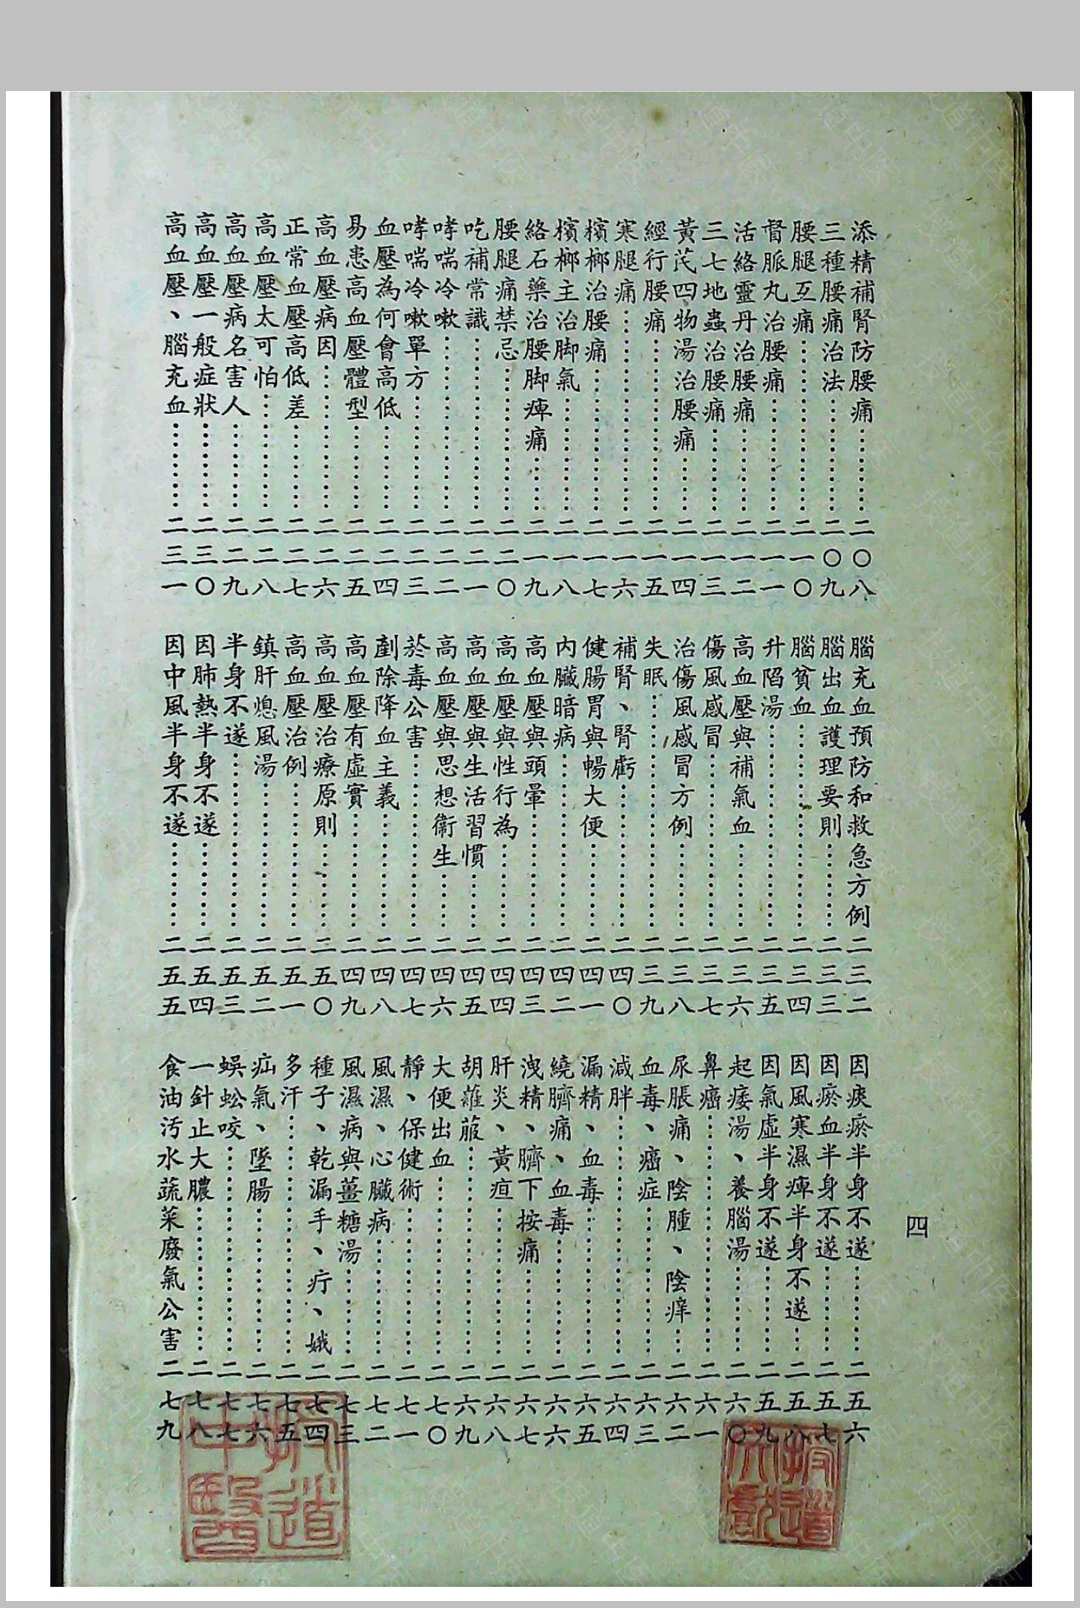 四
添精補腎防腰痛⋯⋯⋯二〇八
三種腰痛治法⋯⋯⋯二〇九
腰腿互痛⋯⋯⋯二一〇
督脈丸治腰痛⋯⋯⋯二一一
活絡靈丹治腰痛⋯⋯⋯二一二
三七地蟲治腰痛⋯⋯⋯二一三
黃芪四物湯治腰痛⋯⋯⋯二一四
經行腰痛⋯⋯⋯二一五
寒腿痛⋯⋯⋯二一六
檳榔治腰痛⋯⋯⋯二一七
檳榔主治脚氣⋯⋯⋯二一八
絡石藥治腰脚痺痛⋯⋯⋯二一九
腰腿痛禁忌⋯⋯⋯二二〇
吃補常識⋯⋯⋯二二一
哮喘冷嗽⋯⋯⋯二二二
哮喘冷嗽單方⋯⋯⋯二二三
血壓為何會高低⋯⋯⋯二二四
易患高血壓體型⋯⋯⋯二二五
高血壓病因⋯⋯⋯二二六
正常血壓高低差⋯⋯⋯二二七
高血壓太可怕⋯⋯⋯二二八
高血壓病名害人⋯⋯⋯二二九
高血壓一般症狀⋯⋯⋯二三〇
高血壓、腦充血⋯⋯⋯二三一
腦充血預防和救急方例二三二
腦出血護理要則⋯⋯⋯二三三
腦貧血⋯⋯⋯二三四
升陷湯⋯⋯⋯二三五
高血壓與補氣血⋯⋯⋯二三六
傷風感冒⋯⋯⋯二三七
治傷風感冒方例⋯⋯⋯二三八
失眠⋯⋯⋯二三九
補腎、腎虧⋯⋯⋯二四〇
健腸胃與暢大便⋯⋯⋯二四一
內臟暗病⋯⋯⋯二四二
高血壓與頭暈⋯⋯⋯二四三
高血壓與性行為⋯⋯⋯二四四
高血壓與生活習慣⋯⋯⋯二四五
高血壓與思想衛生⋯⋯⋯二四六
菸毒公害⋯⋯⋯二四七
剷除降血主義⋯⋯⋯二四八
高血壓有虛實⋯⋯⋯二四九
高血壓治療原則⋯⋯⋯二五〇
高血壓治例⋯⋯⋯二五一
鎮肝熄風湯⋯⋯⋯二五二
半身不遂⋯⋯⋯二五三
因肺熱半身不遂⋯⋯⋯二五四
因中風半身不遂⋯⋯⋯二五五
因痰瘀半身不遂⋯⋯⋯二五六
因瘀血半身不遂⋯⋯⋯二五七
因風寒濕痺半身不遂⋯⋯⋯二五八
因氣虛半身不遂⋯⋯⋯二五九
起痿湯、養腦湯⋯⋯⋯二六〇
鼻癌⋯⋯⋯二六一
尿脹痛、陰腫、陰痒⋯⋯⋯二六二
血毒、癌症⋯⋯⋯二六三
減胖⋯⋯⋯二六四
漏精、血毒⋯⋯⋯二六五
繞臍痛、血毒⋯⋯⋯二六六
洩精、臍下按痛⋯⋯⋯二六七
肝炎、黃疸⋯⋯⋯二六八
胡蘿菔⋯⋯⋯二六九
大便出血⋯⋯⋯二七〇
靜、保健術⋯⋯⋯二七一
風濕、心臟病⋯⋯⋯二七二
風濕病與薑糖湯⋯⋯⋯二七三
種子、乾漏手、疔、蛾二七四
多汗⋯⋯⋯二七五
疝氣、墜腸⋯⋯⋯二七六
蜈蚣咬⋯⋯⋯二七七
一針止大膿⋯⋯⋯二七八
食油污水蔬菜廢氣公害二七九
投道中醫